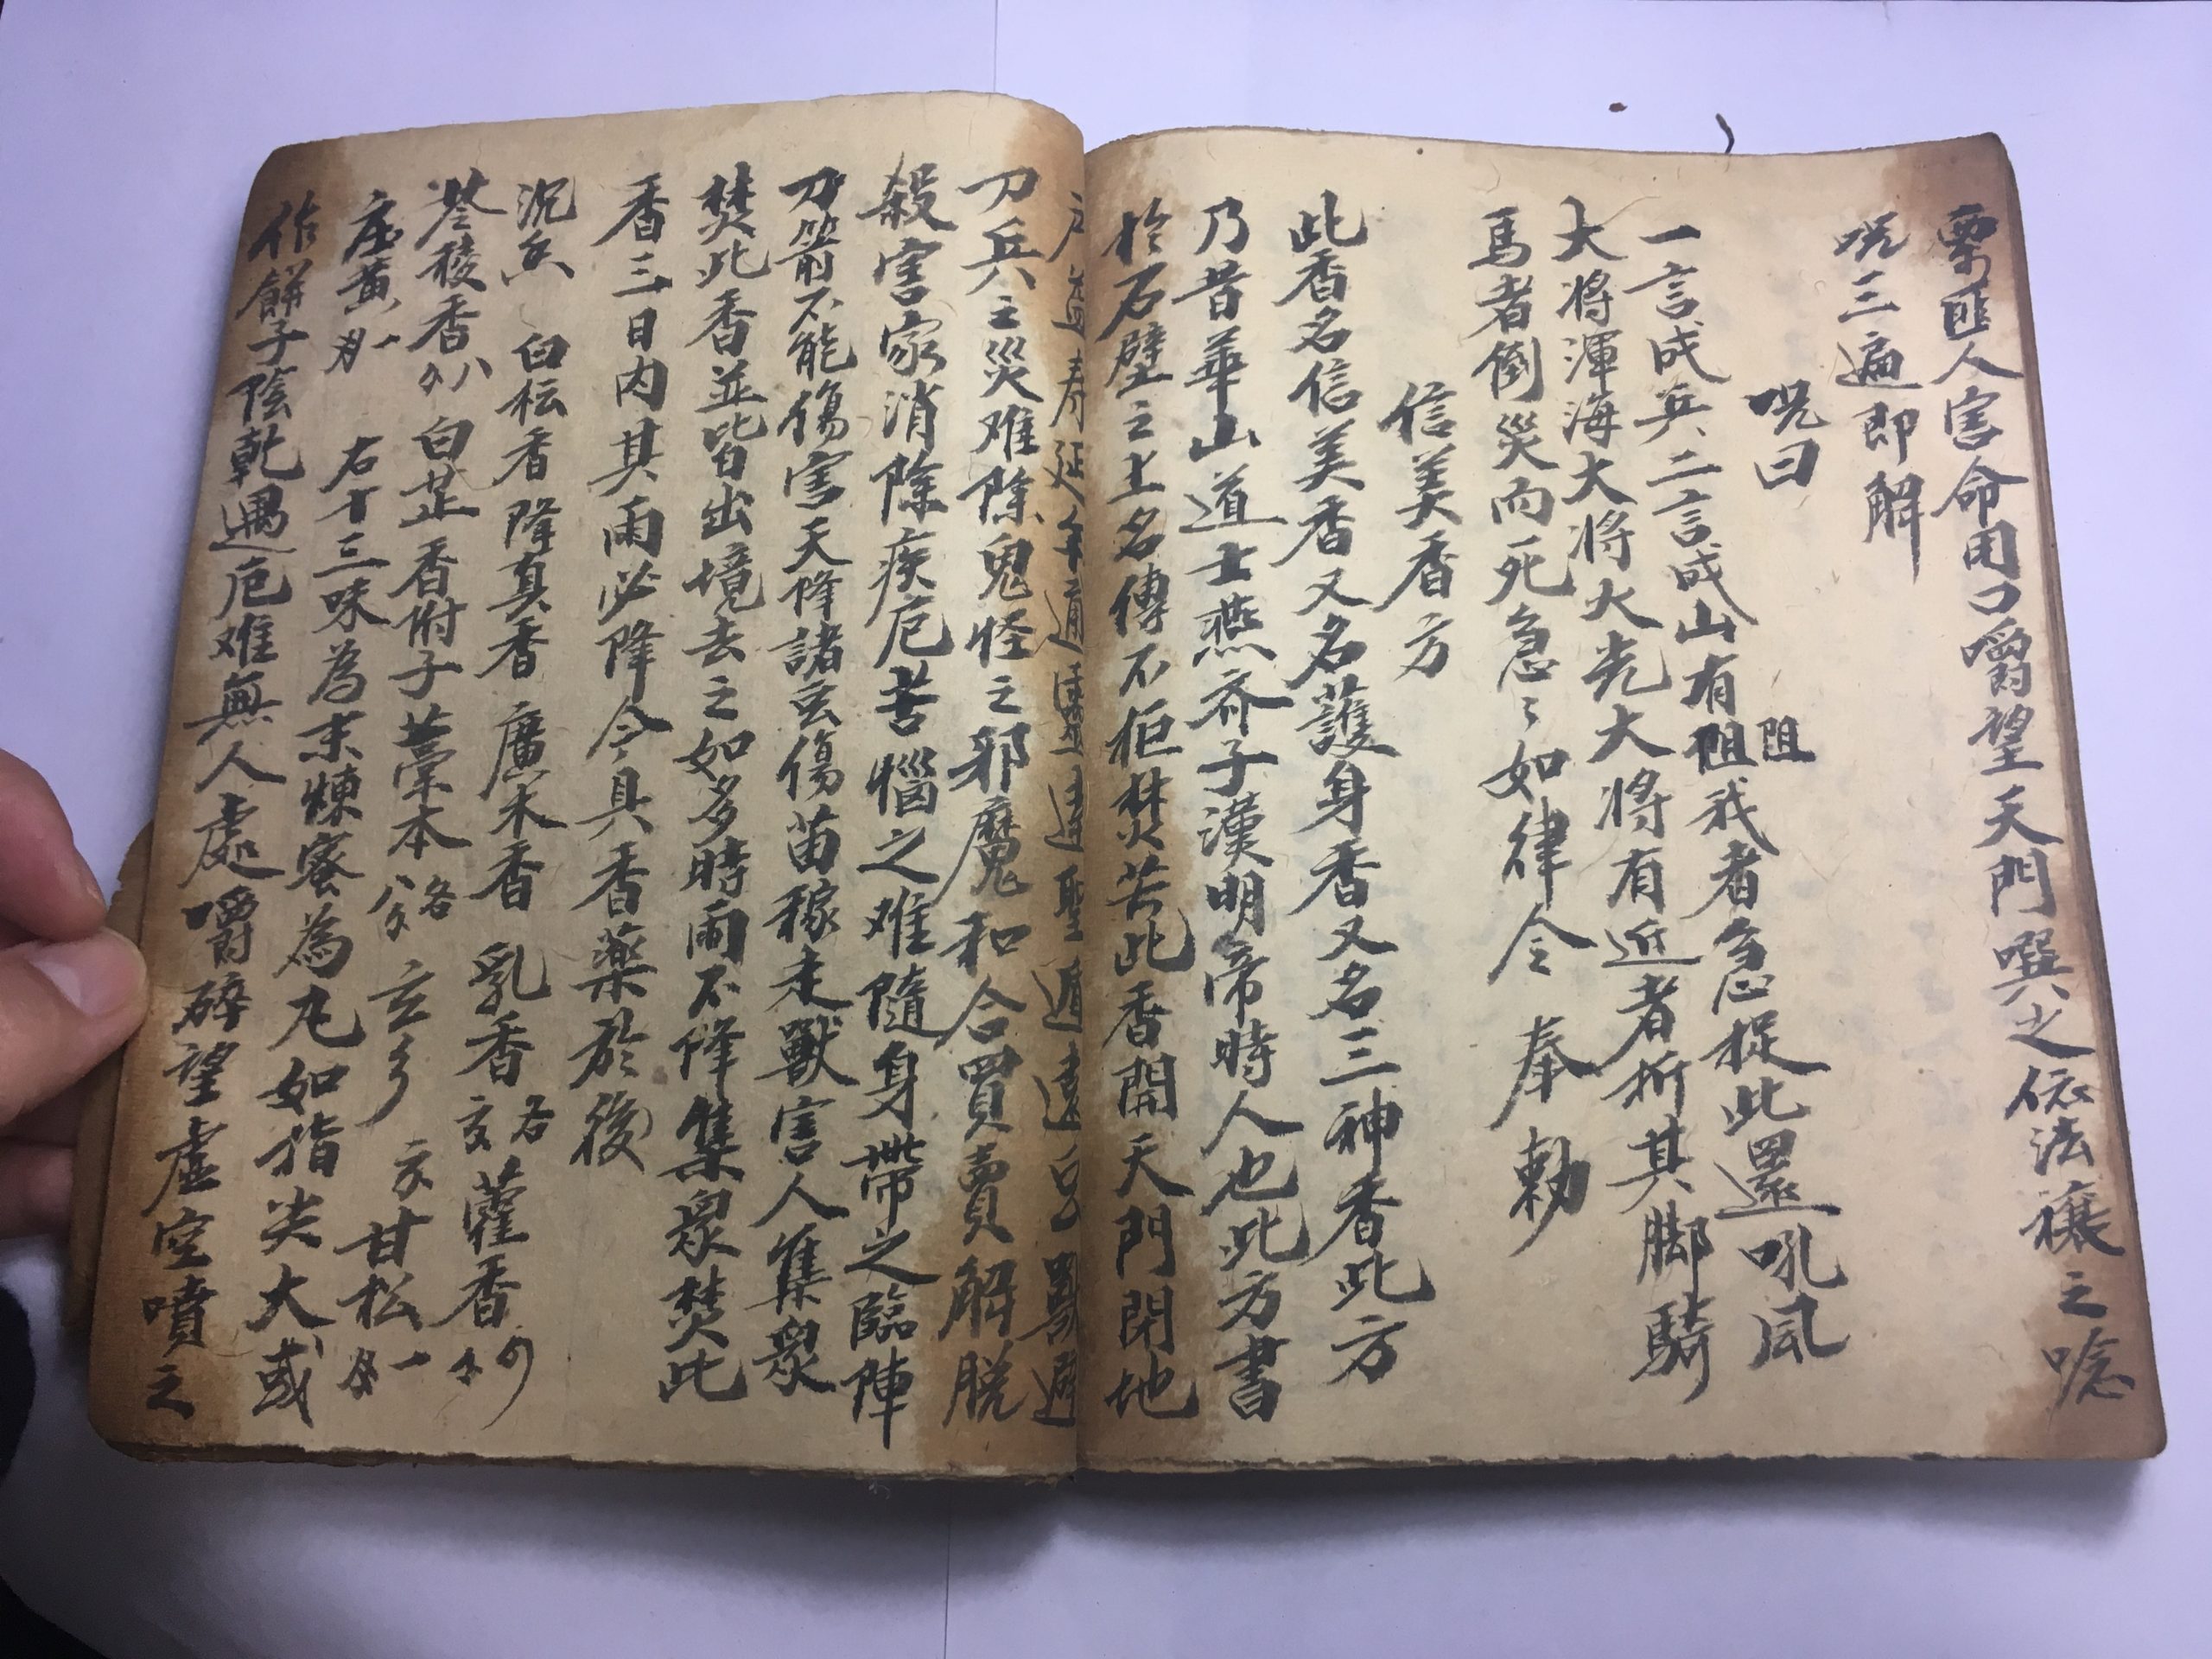 匪人害命用口嚼望天門噀之依法禳之唸
咒三遍即解
咒曰
一言成兵二言成山有阻我者急捉此還吼风
阻
大将渾海大将火光大将有近者折其脚騎
馬者倒災而死急〻如律令 奉勅
信美香方
此香名信美香又名護身香又名三神香此方
乃昔華山道士燕齐子漢明帝時人也此方書
於石壁之上名傳不 焚苦此香開天門閉地
户 壽延年 聖 遠
刀兵之災难除鬼怪之邪魔和合買賣解脱
殺害家消除疾厄苦惱之难隨身帶之臨陣
刀箭不能傷害天降諸 傷苗稼走獸害人集眾
焚此香並皆出境去之如多時雨不降集眾焚此
香三日内其雨必降今具香藥於後
沉 白枟香 降真香 廣木香 乳香 各 藿香
苓稜香 八 白芷 香附子 藁本 各 玄 甘松 一
黄 一 右十三味為末煉蜜為丸如指尖大或
作餅子陰乾遇厄难無人處嚼碎望虛空噴之